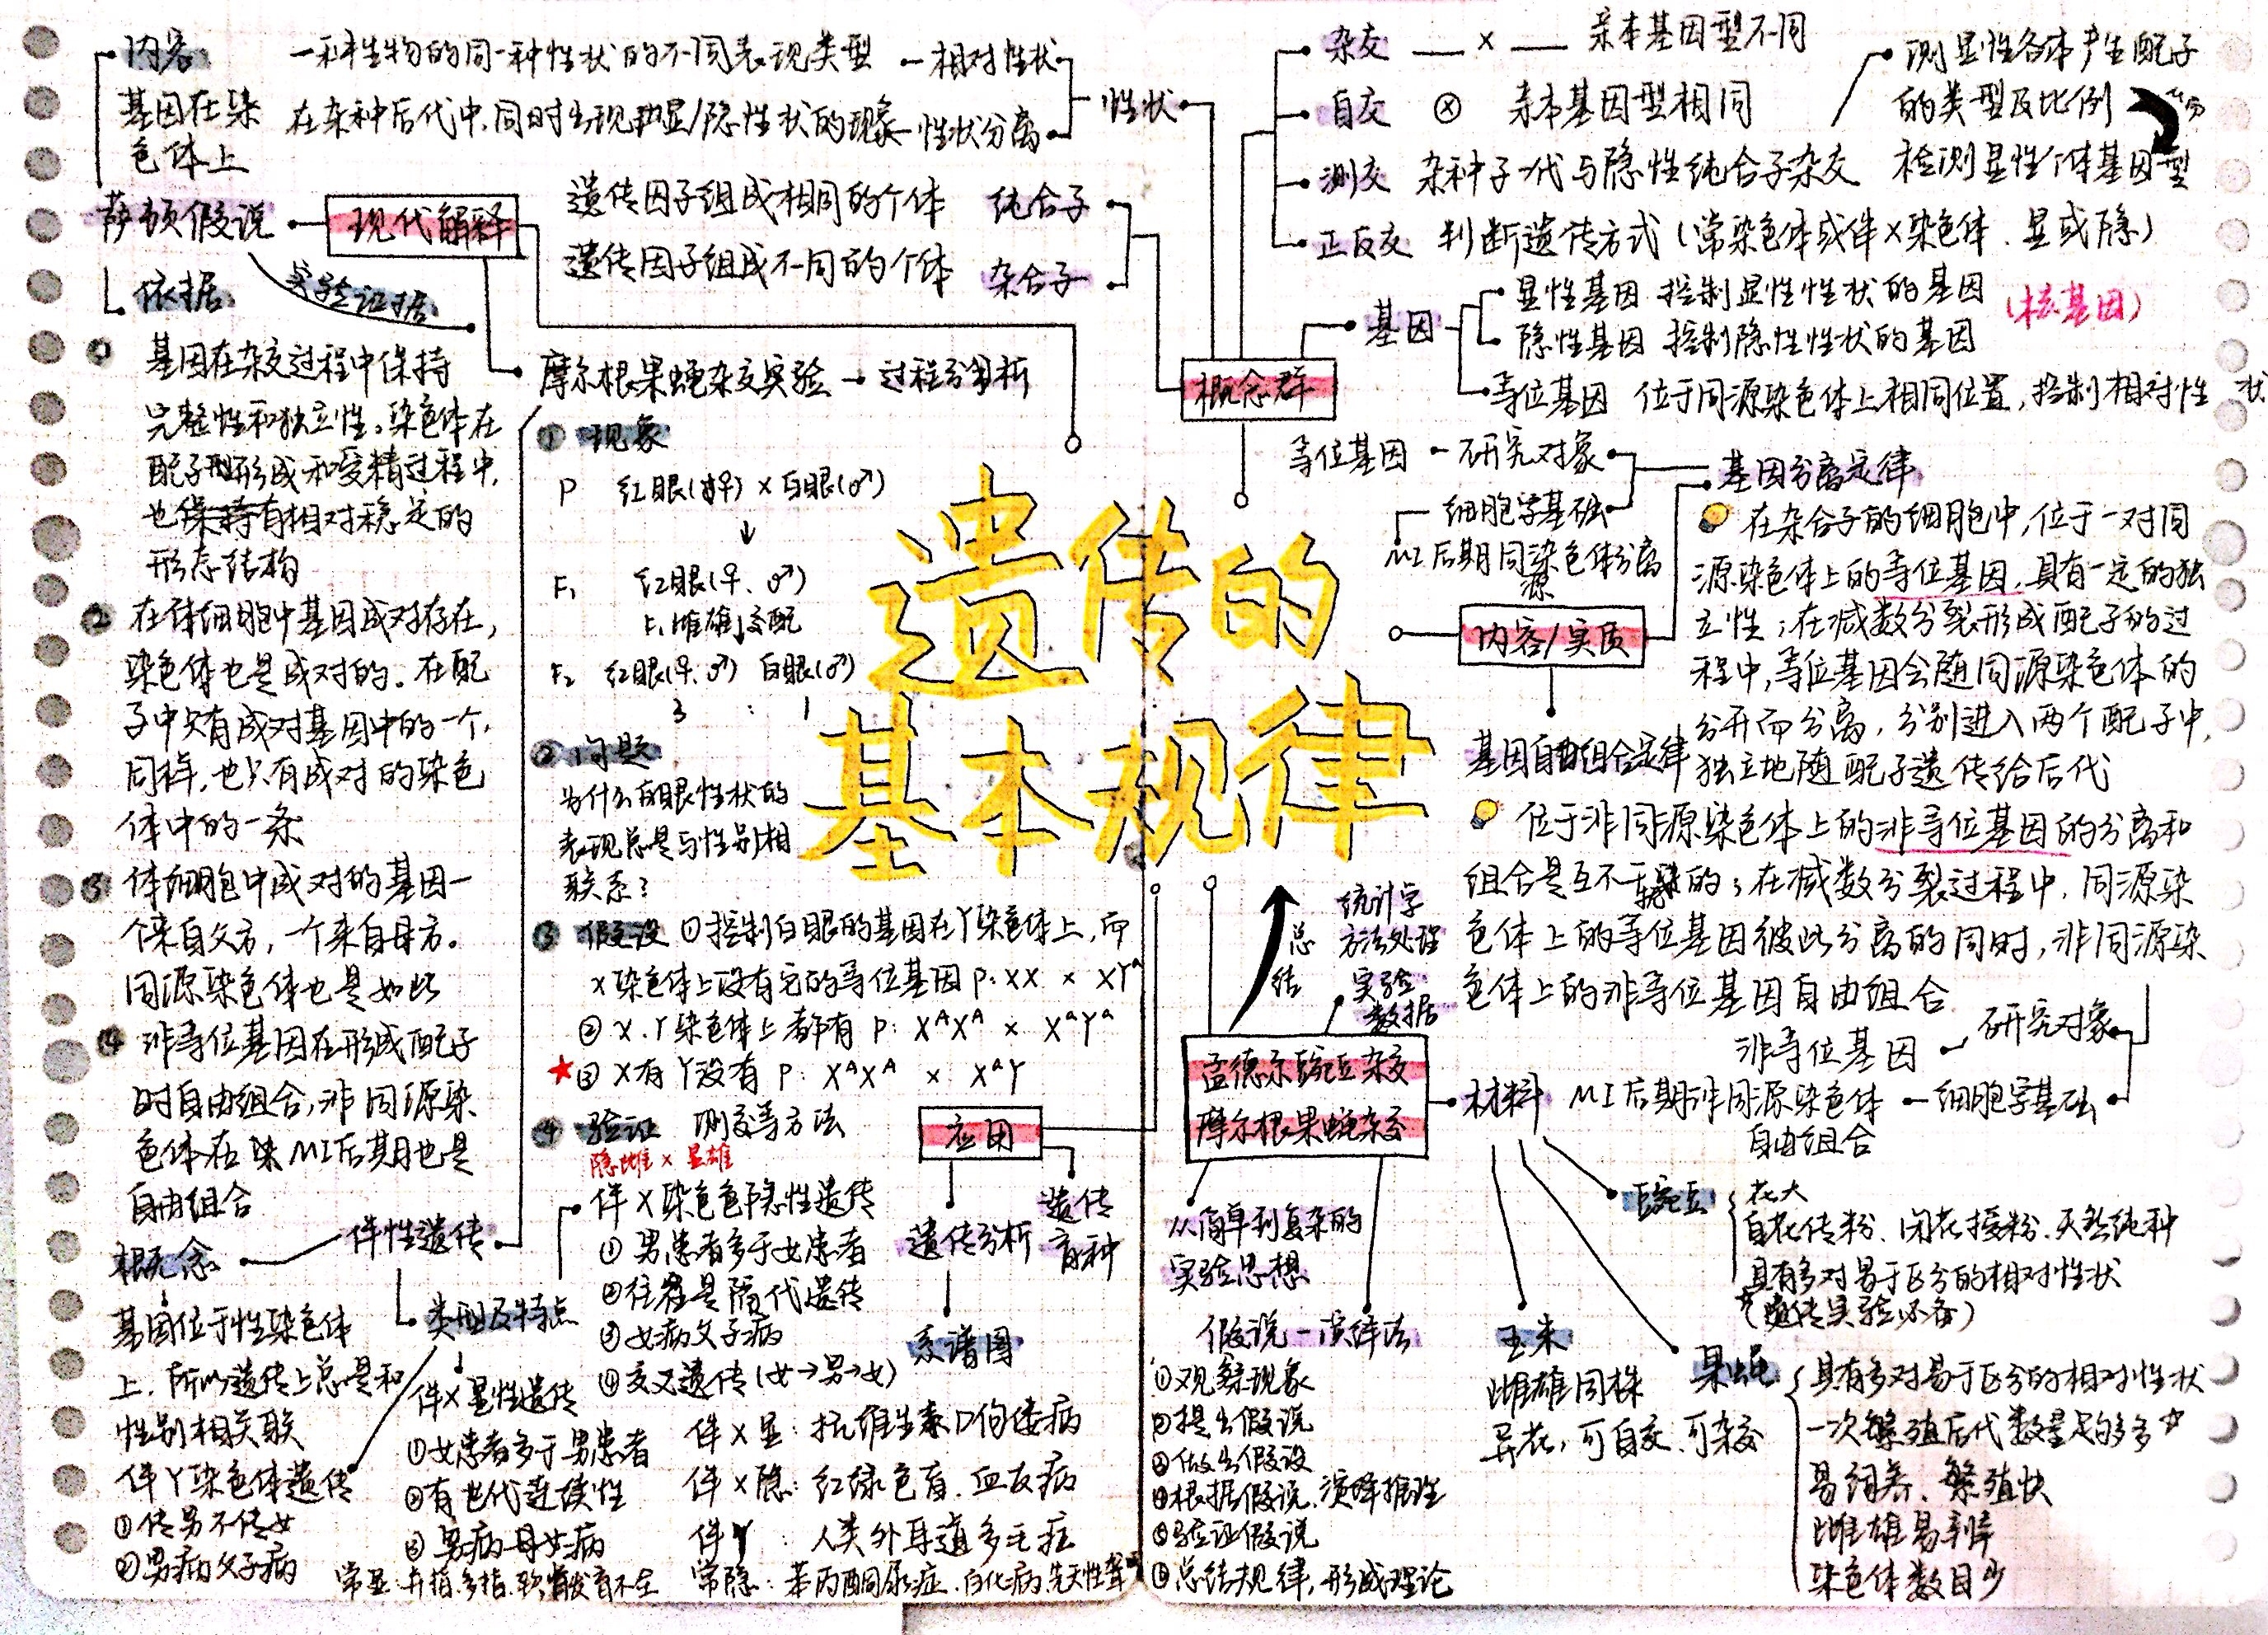 内容
基因在染
色体上
萨顿假说
现代解释
依据
实验证据
一种生物的同一种性状的不同表现类型 — 相对性状
在杂种后代中,同时出现显/隐性状的现象 — 性状分离
性状
遗传因子组成相同的个体 纯合子
遗传因子组成不同的个体 杂合子
① 基因在杂交过程中保持
完整性和独立性。染色体在
配子形成和受精过程中,
也保持有相对稳定的
形态结构
② 在体细胞中基因成对存在,
染色体也是成对的。在配
子中只有成对基因中的一个,
同样,也只有成对的染色
体中的一条
③ 体细胞中成对的基因一
个来自父方,一个来自母方。
同源染色体也是如此
④ 非等位基因在形成配子
时自由组合,非同源染
色体在MI后期也是
自由组合
摩尔根果蝇杂交实验 → 过程分析
① 现象
P 红眼(♀) × 白眼(♂)
↓
F₁ 红眼(♀、♂)
F₁雌雄交配
F₂ 红眼(♀、♂) 白眼(♂)
3 : 1
② 问题
为什么白眼性状的
表现总是与性别相
联系?
③ 假设 ①控制白眼的基因在Y染色体上,而
X染色体上没有它的等位基因 P: XX × XYᵃ
② X、Y染色体上都有 P: XᴬXᴬ × XᵃYᵃ
★③ X有Y没有 P: XᴬXᴬ × XᵃY
④ 验证 测交等方法
隐雌 × 显雄
伴性遗传
概念
基因位于性染色体
上,所以遗传上总是和
性别相关联
类型及特点
伴X染色色隐性遗传
① 男患者多于女患者
②往往是隔代遗传
③ 女病父子病
④ 交叉遗传(女→男→女)
伴X显性遗传
①女患者多于男患者
②有世代连续性
③ 男病母女病
伴Y染色体遗传
①传男不传女
②男病父子病
伴X显: 抗维生素D佝偻病
伴X隐: 红绿色盲、血友病
伴Y : 人类外耳道多毛症
常显: 并指、多指、软骨发育不全
常隐: 苯丙酮尿症、白化病、先天性聋哑
应用
遗传分析
系谱图
遗传
育种
遗传的
基本规律
概念群
杂交 __ × __ 亲本基因型不同
自交 ⊗ 亲本基因型相同
测交 杂种子一代与隐性纯合子杂交
测显性个体产生配子
的类型及比例
检测显性个体基因型
正反交 判断遗传方式(常染色体或伴X染色体、显或隐)
基因
显性基因 控制显性性状的基因
隐性基因 控制隐性性状的基因
(核基因)
等位基因 位于同源染色体上相同位置,控制相对性状
内容/实质
基因分离定律
等位基因 — 研究对象
细胞学基础
MI后期同源染色体分离
在杂合子的细胞中,位于一对同
源染色体上的等位基因,具有一定的独
立性;在减数分裂形成配子的过
程中,等位基因会随同源染色体的
分开而分离,分别进入两个配子中,
独立地随配子遗传给后代
基因自由组合定律
位于非同源染色体上的非等位基因的分离和
组合是互不干扰的;在减数分裂过程中,同源染
色体上的等位基因彼此分离的同时,非同源染
色体上的非等位基因自由组合
非等位基因 — 研究对象
MI后期非同源染色体 — 细胞学基础
自由组合
总
结
统计学
方法处理
实验
数据
孟德尔豌豆杂交
摩尔根果蝇杂交
从简单到复杂的
实验思想
假说—演绎法
①观察现象
②提出假说
③做出假设
④根据假说,演绎推理
⑤验证假说
⑥总结规律,形成理论
材料
豌豆
花大
自花传粉、闭花授粉、天然纯种
具有多对易于区分的相对性状
(遗传实验必备)
玉米
雌雄同株
异花,可自交、可杂交
果蝇
具有多对易于区分的相对性状
一次繁殖后代数量足够多☆
易饲养、繁殖快
雌雄易辨
染色体数目少